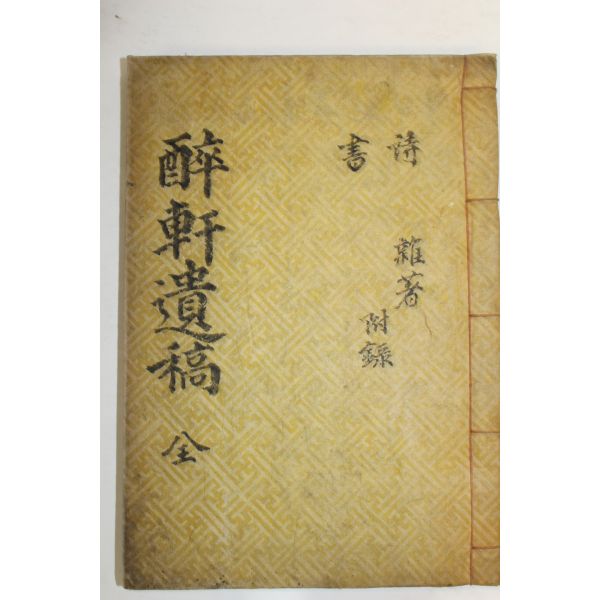 詩
書
雜著
附錄
醉軒遺稿 全